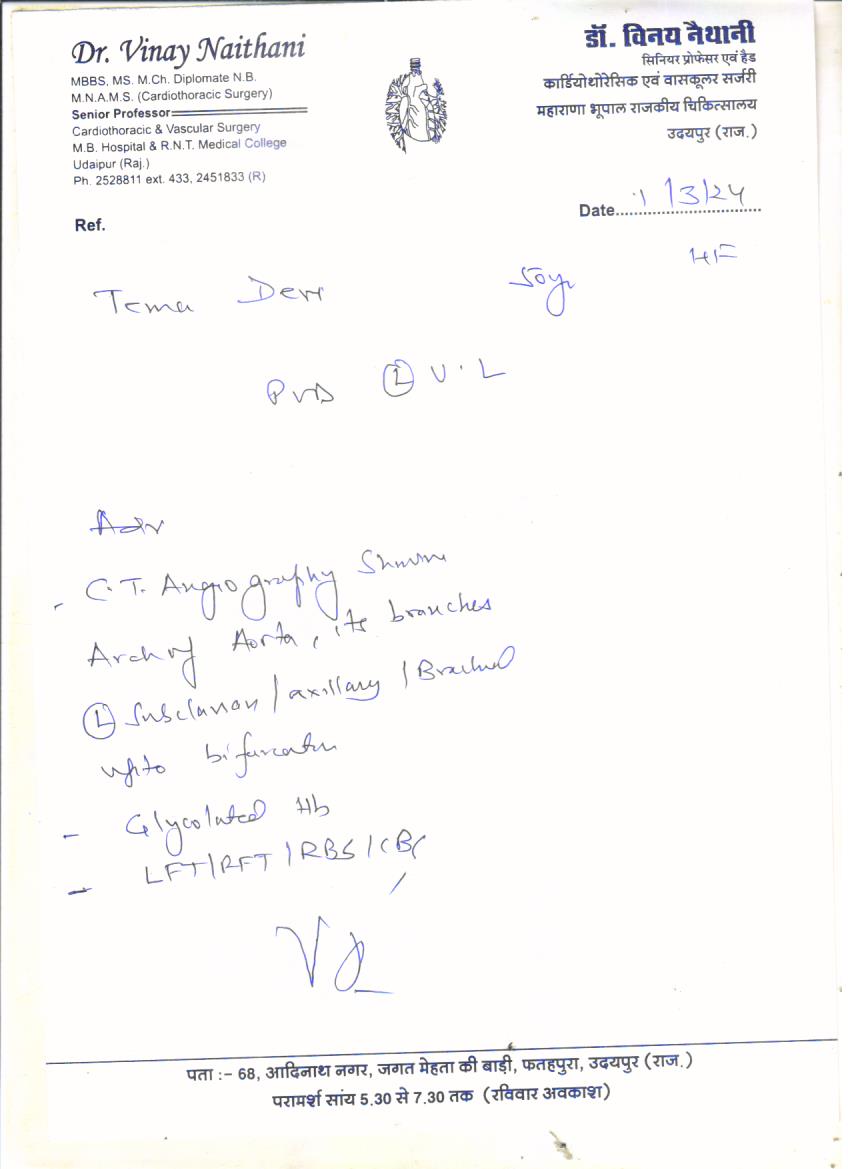 Dr. Vinay Naithani
MBBS, MS. M.Ch. Diplomate N.B.
M.N.A.M.S. (Cardiothoracic Surgery)
Senior Professor
Cardiothoracic & Vascular Surgery
M.B. Hospital & R.N.T. Medical College
Udaipur (Raj.)
Ph. 2528811 ext. 433, 2451833 (R)
डॉ. विनय नैथानी
सिनियर प्रोफेसर एवं हैड
कार्डियोथोरेसिक एवं वासकूलर सर्जरी
महाराणा भूपाल राजकीय चिकित्सालय
उदयपुर (राज.)
Ref.
Date 1/3/24
Devi 50yr
PVD Ⓛ U.L
Adv
- C.T. Angiography
Arch of Aorta, its branches
Ⓛ Subclavian / axillary / Brachial
upto bifurcation
- Glycolated Hb
- LFT/RFT/RBS/CBC
पता :– 68, आदिनाथ नगर, जगत मेहता की बाड़ी, फतहपुरा, उदयपुर (राज.)
परामर्श सांय 5.30 से 7.30 तक (रविवार अवकाश)